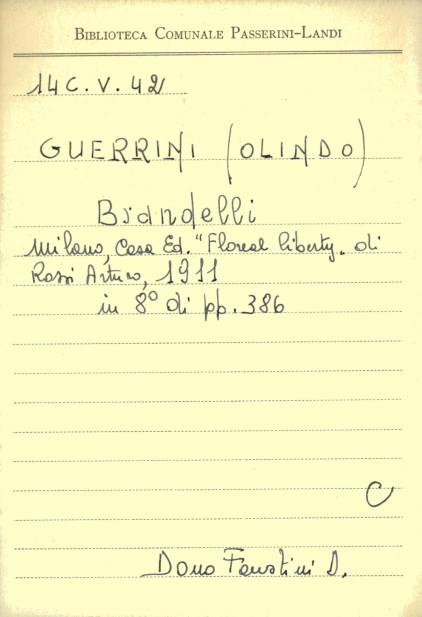 BIBLIOTECA COMUNALE PASSERINI-LANDI
14 C. V. 42
GUERRINI (OLINDO)
Brandelli
Milano, Casa Ed. "Floreal liberty. di
Rossi Arturo, 1911
in 8° di pp. 386
C
Dono Faustini D.